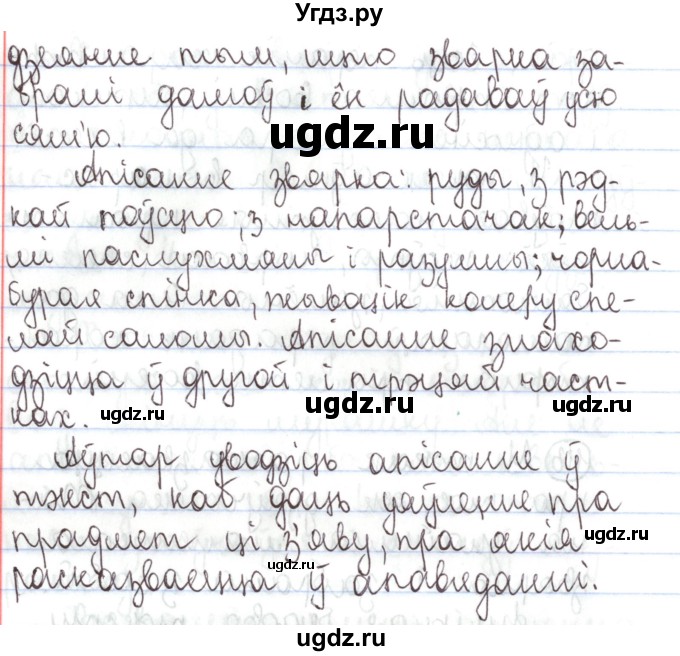 Угдз.ру
дзеянне тым, што зварка за-
бралі дамоў і ён радаваў усю
сям'ю.
Апісанне звярка: руды, з рэд-
кай поўсцю; з напарстачак; вель-
мі паслухмяны і разумны; чорна-
бурая спінка, жывоцік колеру спе-
лай саломы. Апісанне знахо-
дзіцца ў другой і трэцяй част-
ках.
Аўтар уводзіць апісанне ў
тэкст, каб даць уяўленне пра
прадмет ці з'яву, пра якія
расказваецца ў апавяданні.
ugdz.ru
ugdz.ru
ugdz.ru
ugdz.ru
ugdz.ru
ugdz.ru
ugdz.ru
ugdz.ru
ugdz.ru